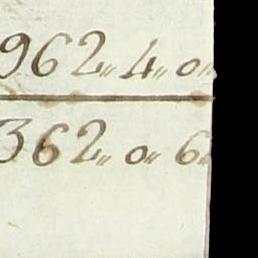 962" 4" 0"
362" 0" 6"